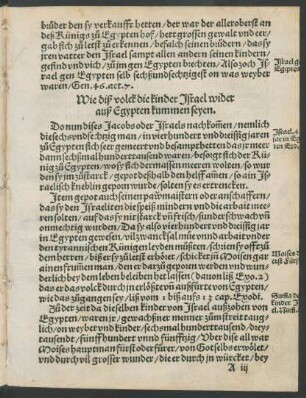 brüder den sy verkaufft hetten / der war der alleroberst an
deß Künigs zů Egypten hof / hett grossen gewalt vnd eer:
gab sich zů letst zů erkennen / befalch seinen brüdern / das sy
jren vatter den Israel sampt allen andern seinen kindern /
gesind vnd vich / zů jm gen Egypten brechten / Also zoch Is
rael gen Egypten selb sechß und sechtzigest on was weyber
waren / Gen. 46. act. 7.
Wie diß volck die kinder Israel wider
auß Egypten kummen seyen.
Do nun dises Jacobs oder Israels nachkommen / nemlich
die sechs vnd sechtzig man / in vierhundert vnd dreissig jaren
zů Egypten sich seer gemeert vnd besampt hetten das jr meer
dann sechßmal hundert tausend waren / besorgt sich der Kü
nig zů Egypten / wo sy bey dem mindern warnemen / so wur
den sy jm zů starck / gepot deßhalb den hebammen / so ain Js
raelisch kneblin geporn wurde / solten sy es ertrencken.
Item gepot auch seinen pawmaistern oder anschaffern /
das sy den Israeliten die speiß mindern vnd die arbeit mee
ren solten / auff das sy nit starck vnd frisch / sunder schwach vnd
onmechtig wurden / Da sy also vierhundert vnd dreissig jar
in Egypten gewesen / vil zwancksal můe vnd arbait vnder
den tyrannischen Künigen leyden můsten / schrien sy offt zů
dem herren / biß er sy zů letst erhöret / schicket jn Moisen gar
ain frummen man / den er darzů gezogen worden vnd wun-
derlich bey dem leben beleiben het lassen / (dauon liß Exo. 2.)
das er das volck durch jn erlößt von auß fürt von Egypten /
wie das zůgangen sey / liß vom 1 biß auf 15 cap. Exodi.
Zů der zeit da die selben kinder von Israel außzohen von
Egypten / waren jr / gewachßner menner zům streit taug-
lich / on weyber vnd kinder / sechsmalhundert tausend / drey-
tausendt / fünffhundert vnnd fünfftzig / Vber dise all war
Moises hauptman fürst oder fürer / von Got selbs erwölet /
vnd durch vil grosser wunder / die er durch jn würcket / bey
A iij